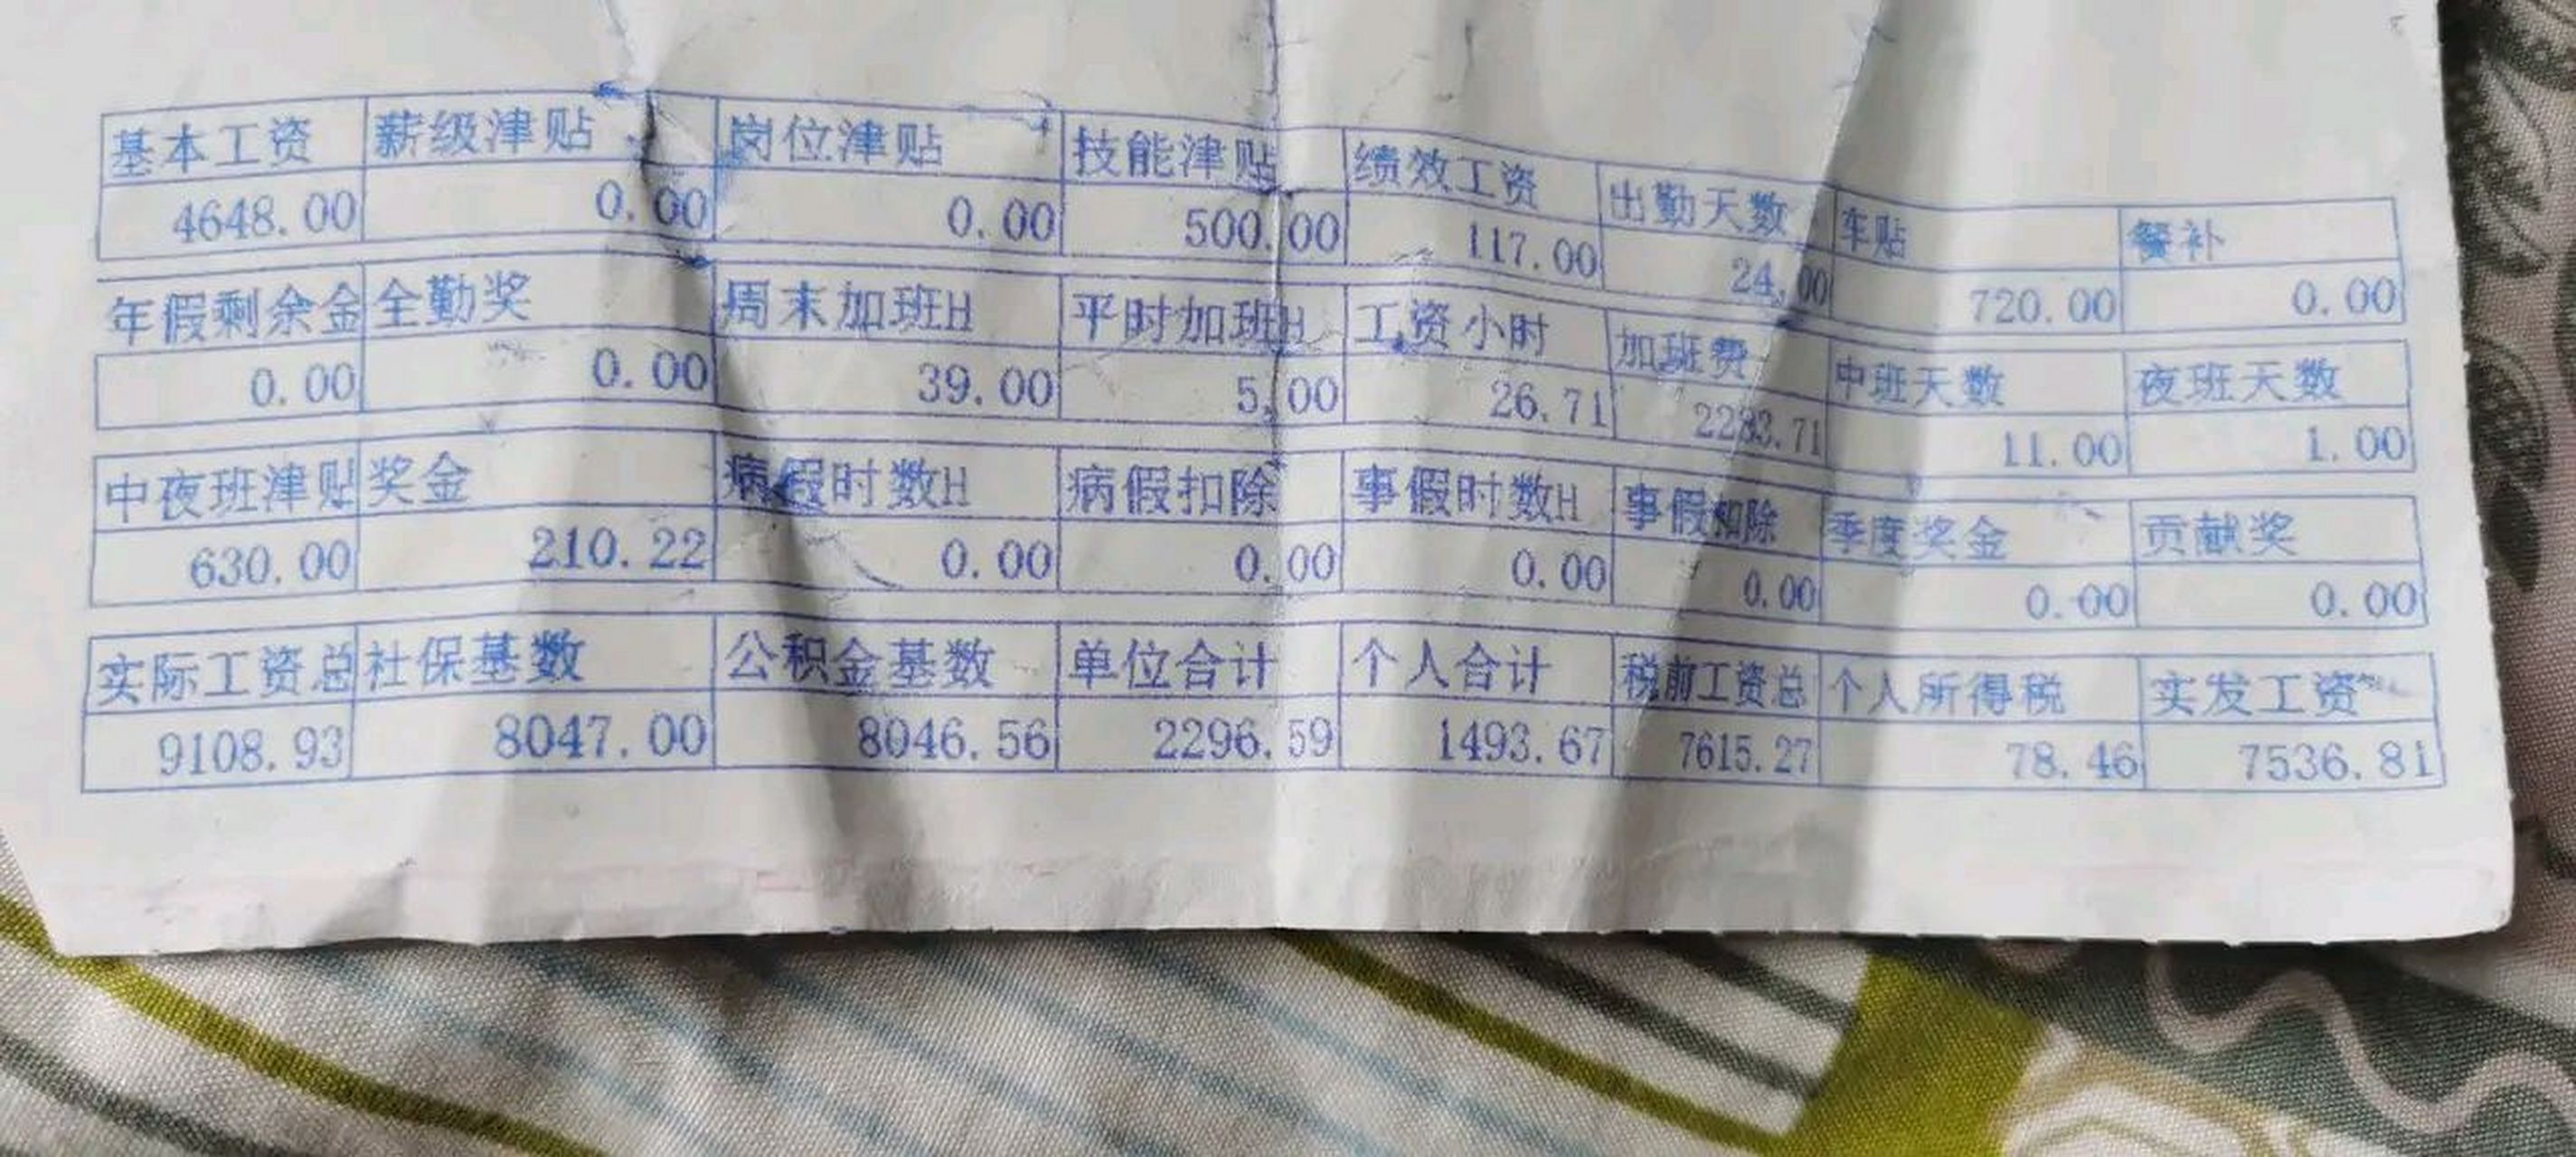 基本工资 薪级津贴 岗位津贴 技能津贴 绩效工资 出勤天数 车贴 餐补
4648.00 0.00 0.00 500.00 117.00 24.00 720.00 0.00
年假剩余金 全勤奖 周末加班H 平时加班H 工资小时 加班费 中班天数 夜班天数
0.00 0.00 39.00 5.00 26.71 2283.71 11.00 1.00
中夜班津贴 奖金 病假时数H 病假扣除 事假时数H 事假扣除 季度奖金 贡献奖
630.00 210.22 0.00 0.00 0.00 0.00 0.00 0.00
实际工资总 社保基数 公积金基数 单位合计 个人合计 税前工资总 个人所得税 实发工资
9108.93 8047.00 8046.56 2296.59 1493.67 7615.27 78.46 7536.81